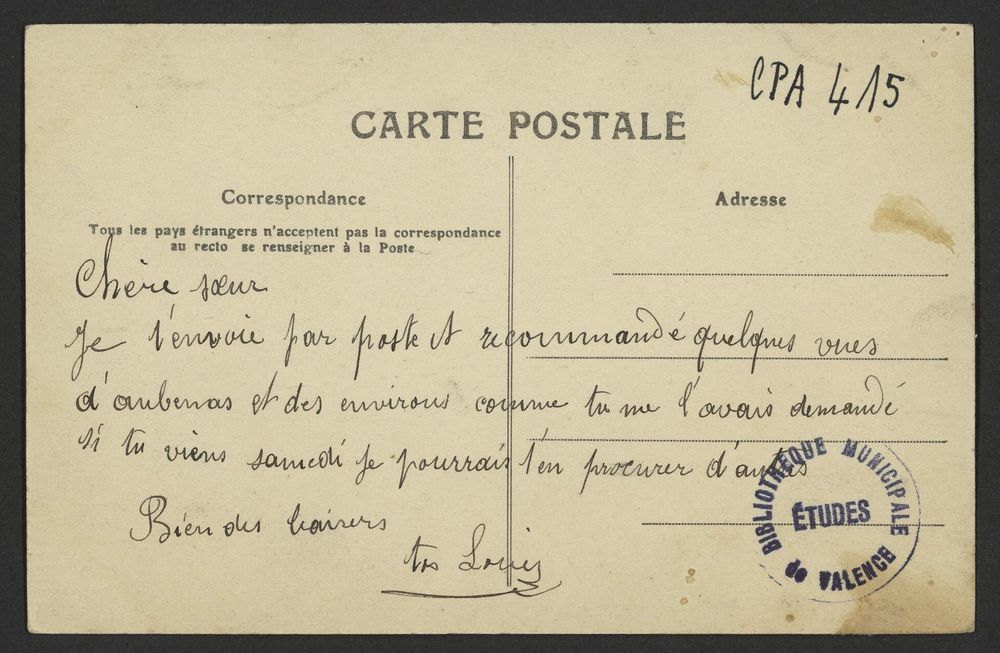 CPA 415
CARTE POSTALE
Correspondance
Tous les pays étrangers n'acceptent pas la correspondance
au recto se renseigner à la Poste
Adresse
Chère sœur
Je t'envoie par poste et recommandé quelques vues
d'aubenas et des environs comme tu me l'avais demandé
si tu viens samedi je pourrais t'en procurer d'autres
Bien des baisers
ton Louis
BIBLIOTHEQUE MUNICIPALE
ÉTUDES
de VALENCE